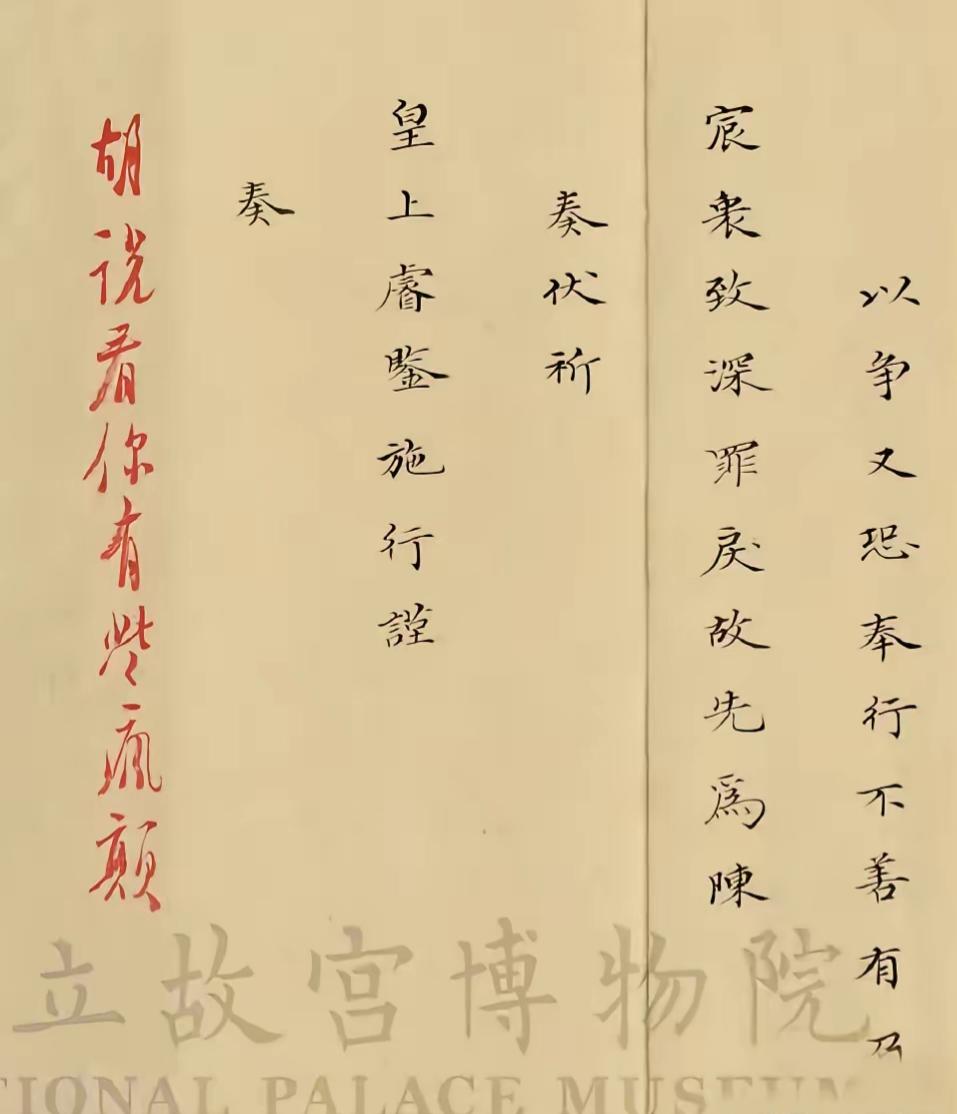 以争又恐奉行不善有
宸衷致深罪戾故先爲陳
奏伏祈
皇上睿鑒施行謹
奏
胡說看你有些瘋顛
立故宫博物院
TIONAL PALACE MUSEUM